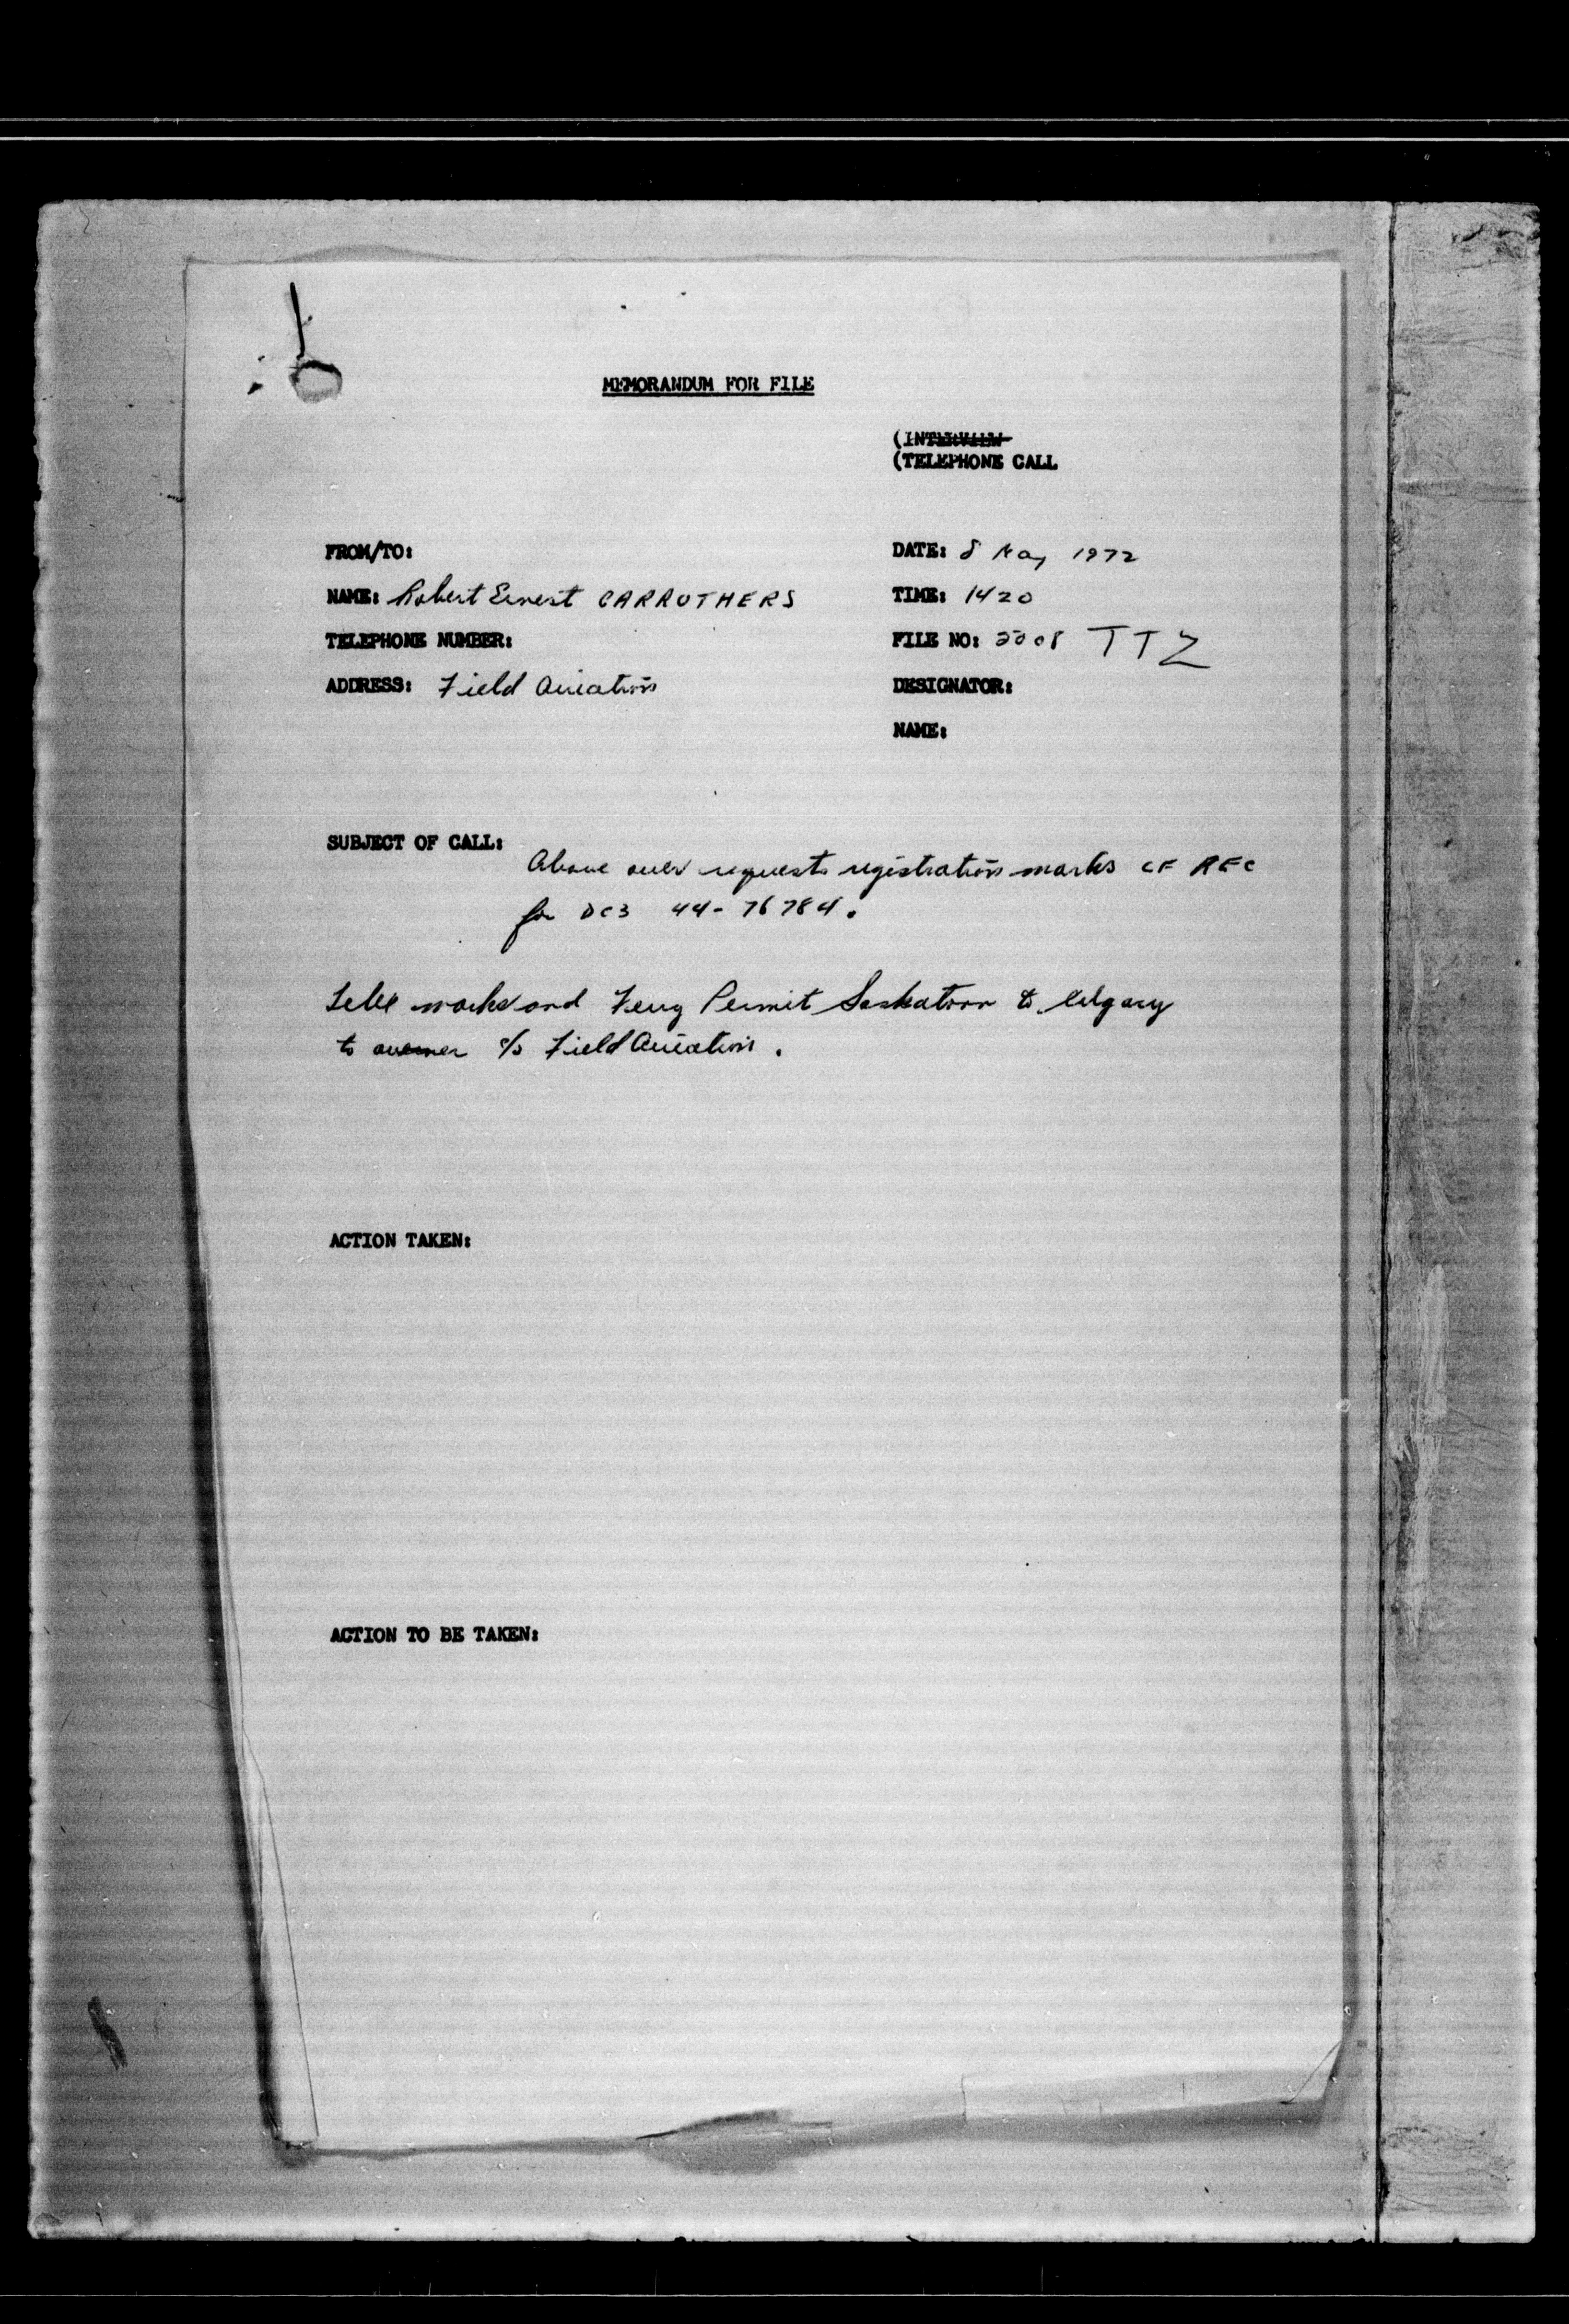 MEMORANDUM FOR FILE
(INTERVIEW
(TELEPHONE CALL
FROM/TO:
DATE: 8 May 1972
NAME: Robert Ernest CARROTHERS
TIME: 1420
TELEPHONE NUMBER:
FILE NO: 5008 TTZ
ADDRESS: Field Aviation
DESIGNATOR:
NAME:
SUBJECT OF CALL:
Above requests registration marks CF REC
for DC3 44-76784.
marks and Ferry Permit Saskatoon to Calgary
to owner c/o Field Aviation.
ACTION TAKEN:
ACTION TO BE TAKEN: